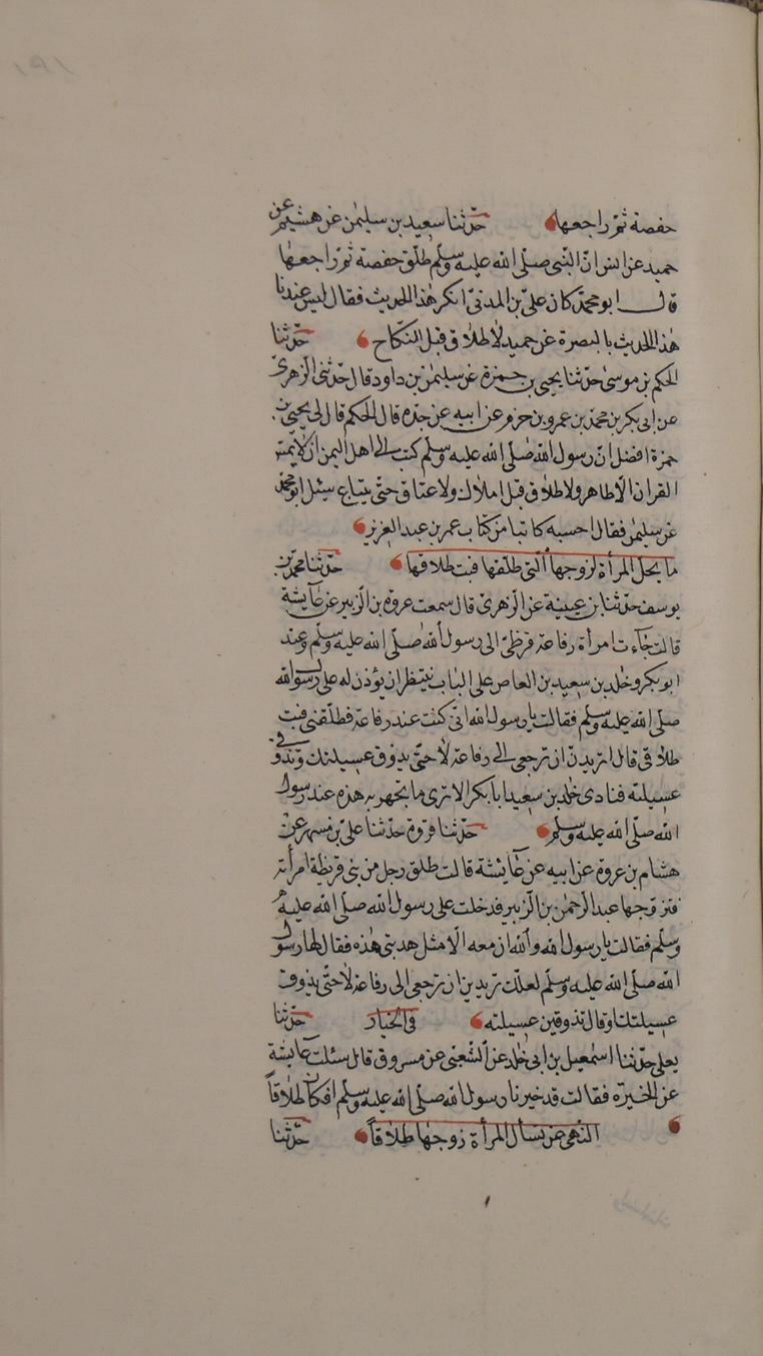 حفصة ثم راجعها حدثنا سعيد بن سليمن عن هشيم عن
حميد عن انس ان النبى صلى الله عليه وسلم طلق حفصة ثم راجعها
قال ابو محمد كان على بن المدنى انكر هذا الحديث فقال ليس عندنا
هذا الحديث بالبصرة عن حميد لا طلاق قبل النكاح حدثنا
الحكم بن موسى حدثنا يحيى بن حمزة عن سليمن بن داود قال حدثنى الزهرى
عن ابى بكر بن محمد بن عمرو بن حزم عن ابيه عن جده قال الحكم قال لى يحيى بن
حمزة افصل ان رسول الله صلى الله عليه وسلم كتب الى اهل اليمن ان لا يمس
القران الا طاهر ولا طلاق قبل املاك ولا عتاق حتى يبتاع سئل ابو محمد
عن سليمن فقال احسبه كاتبا من كتاب عمر بن عبد العزيز
ما يحل المرأة لزوجها التى طلقها فبت طلاقها حدثنا محمد بن
يوسف حدثنا بن عيينة عن الزهرى قال سمعت عروة بن الزبير عن عايشة
قالت جاءت امرأة رفاعة قرظى الى رسول الله صلى الله عليه وسلم وعند
ابو بكر وخلد بن سعيد بن العاص على الباب ينتظر ان يؤذن له على رسول الله
صلى الله عليه وسلم فقالت يا رسول الله انى كنت عند رفاعة فطلقنى فبت
طلاقى قال اتريدين ان ترجعى الى رفاعة لا حتى يذوق عسيلتك وتذوقى
عسيلته فنادى خلد بن سعيد ابا بكر الا ترى ما تجهر به هذه عند رسول
الله صلى الله عليه وسلم حدثنا فروة حدثنا على بن مسهر عن
هشام بن عروة عن ابيه عن عايشة قالت طلق رجل من بنى قريظة امرأته
فتزوجها عبد الرحمن بن الزبير فدخلت على رسول الله صلى الله عليه
وسلم فقالت يا رسول الله والله ان معه الا مثل هدبتى هذه فقال لها رسول
الله صلى الله عليه وسلم لعلك تريدين ان ترجعى الى رفاعة لا حتى يذوق
عسيلتك او قال تذوقين عسيلته فى الخيار حدثنا
يعلى حدثنا اسمعيل بن ابى خلد عن الشعبى عن مسروق قال سئلت عايشة
عن الخيرة فقالت قد خيرنا رسول الله صلى الله عليه وسلم افكان طلاقا
النهى عن تسأل المرأة زوجها طلاقا حدثنا